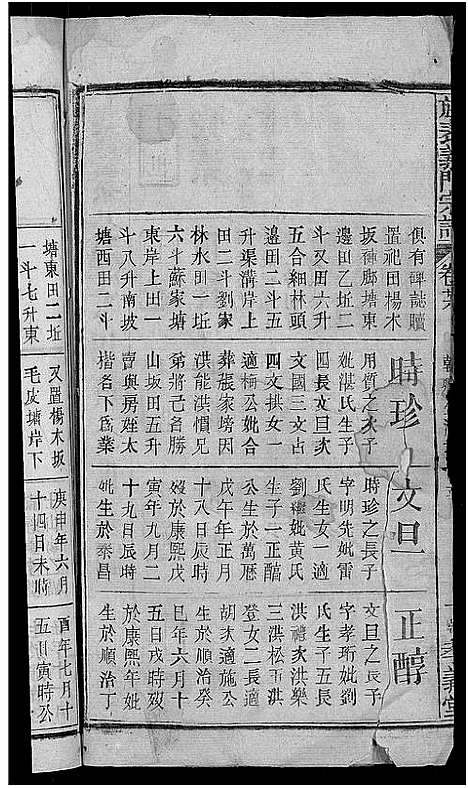 旌表義門宗譜 卷廿六
俱有碑誌贖
置祀田楊木
坂神廊塘東
邊田乙坵二
斗又田六升
五合細林頭
邊田二斗五
升渠溝岸上
田二斗劉家
林水田一坵
六斗蘇家塘
東岸上田一
斗八升南坡
塘西田二斗
時珍
用質之次子
妣湛氏生子
四長文旦次
文國三文占
四文拱女一
適楊公妣合
葬張家塝因
洪能洪慣兄
弟將己名勝
山坂田五升
賣與房姪太
楷名下爲業
文旦
時珍之長子
字明先妣雷
氏生女一適
劉繼妣黃氏
生子一正醕
公生於萬曆
戊午年正月
十八日辰時
歿於康熙戊
寅年九月二
十九日辰時
妣生於泰昌
正醕
文旦之長子
字孝珩妣劉
氏生子五長
洪禮次洪樂
三洪松五洪
登女二長適
胡次適施公
生於順治癸
巳年六月十
五日戌時歿
於康熙年妣
生於順治丁
塘東田二坵
一斗七升東
又置楊木坂
毛皮塘岸下
庚申年六月
十四日未時
酉年七月十
五日寅時公